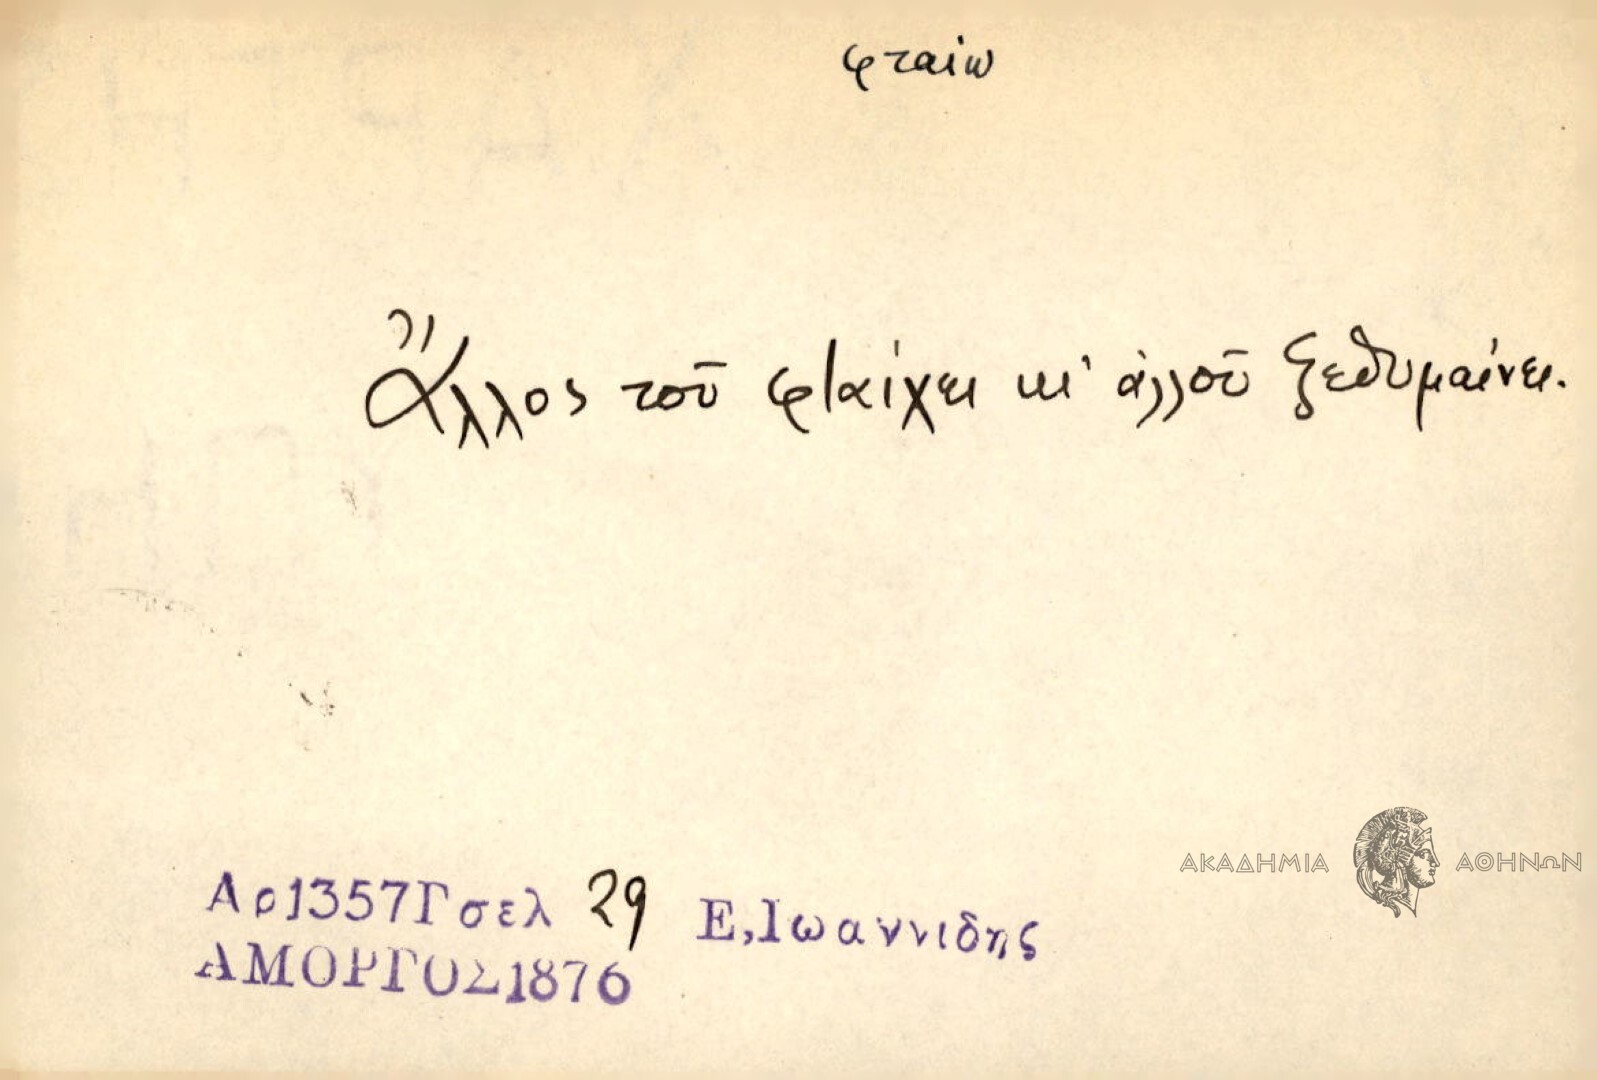 φταίω
Ἄλλος τοῦ φταίχει κι' ἀλλοῦ ξεθυμαίνει.
Αρ 1357Γ σελ 29 Ε, Ιωαννιδης
ΑΜΟΡΓΟΣ 1876
ΑΚΑΔΗΜΙΑ ΑΘΗΝΩΝ